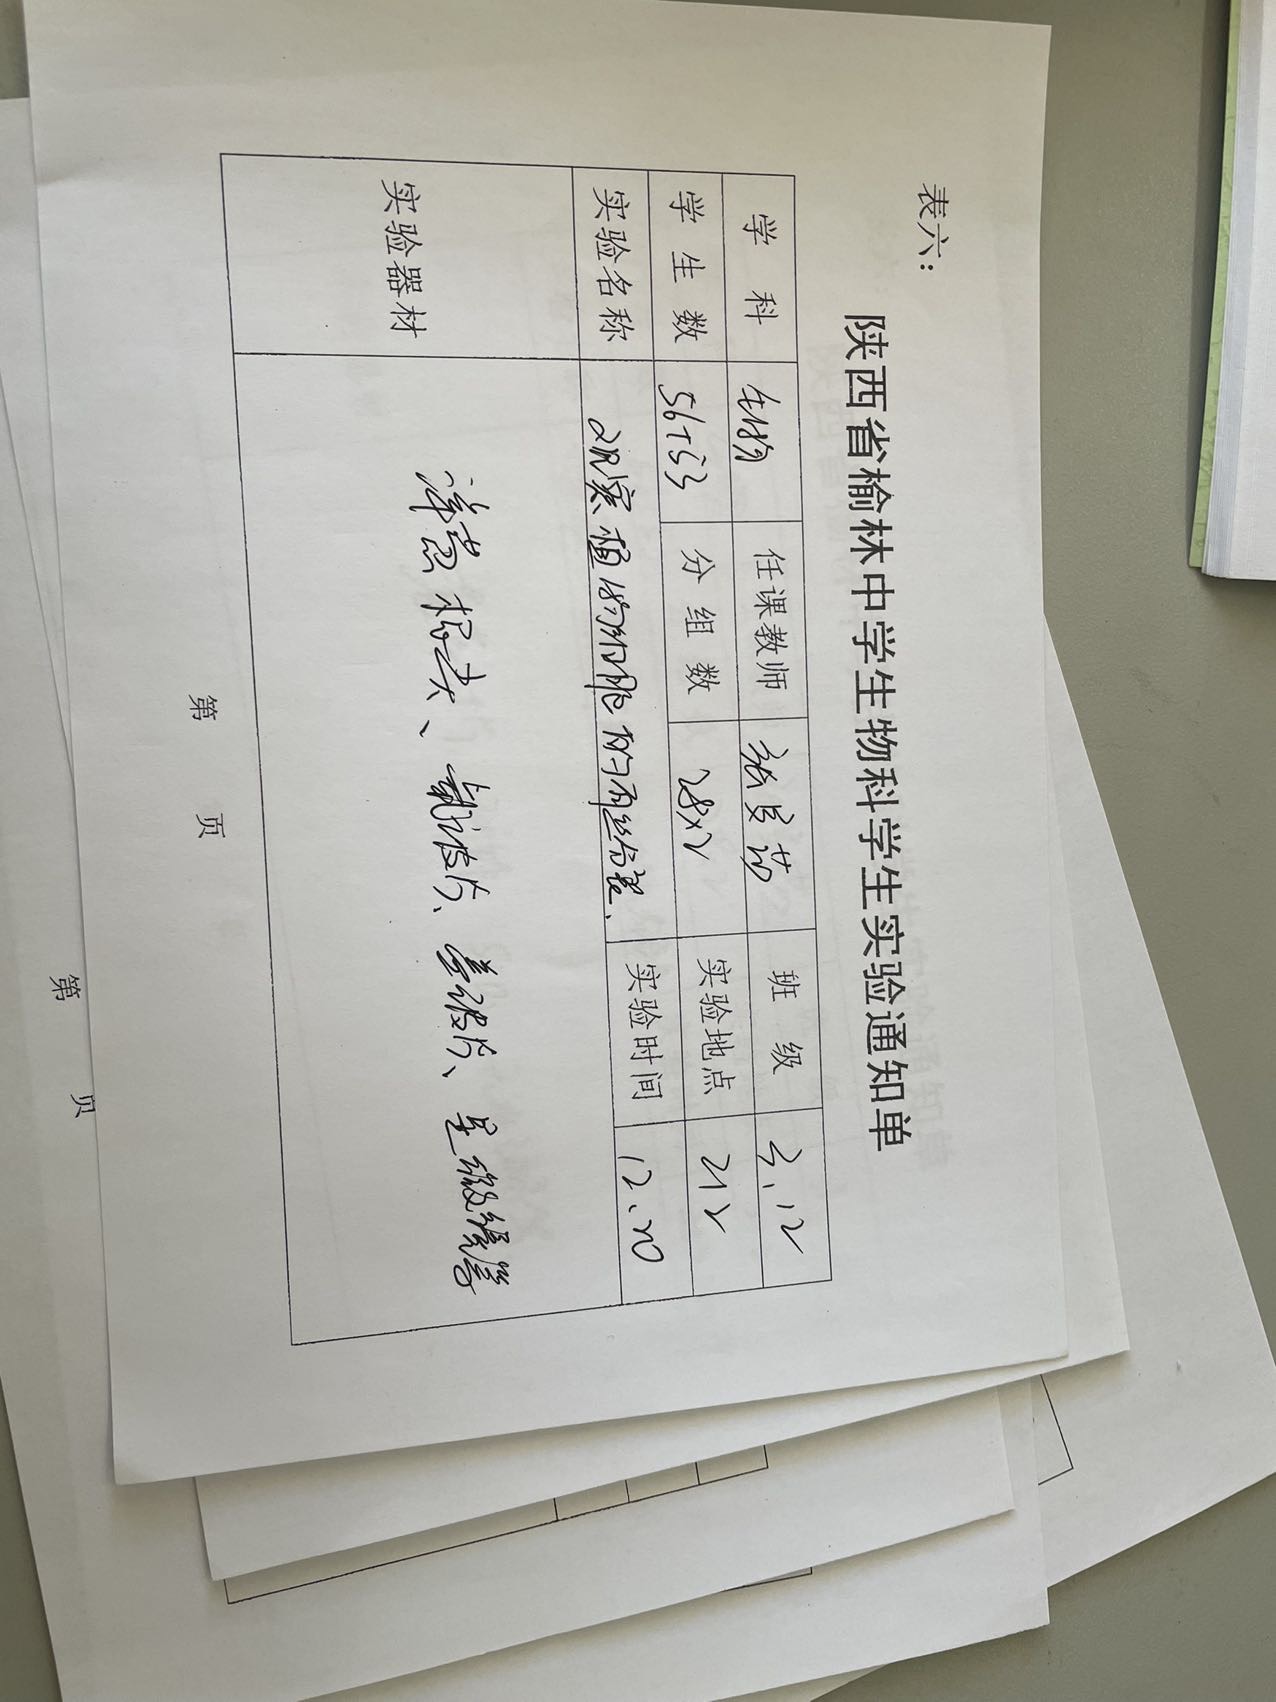 表六：
陕西省榆林中学生物科学生实验通知单
学 科 生物 任课教师 班 级 3、12
学 生 数 56+53 分 组 数 28×2 实验地点 212
实验名称 观察植物细胞的有丝分裂、 实验时间 12、20
实验器材 洋葱根尖、载玻片、盖玻片、显微镜等
第 页
第 页